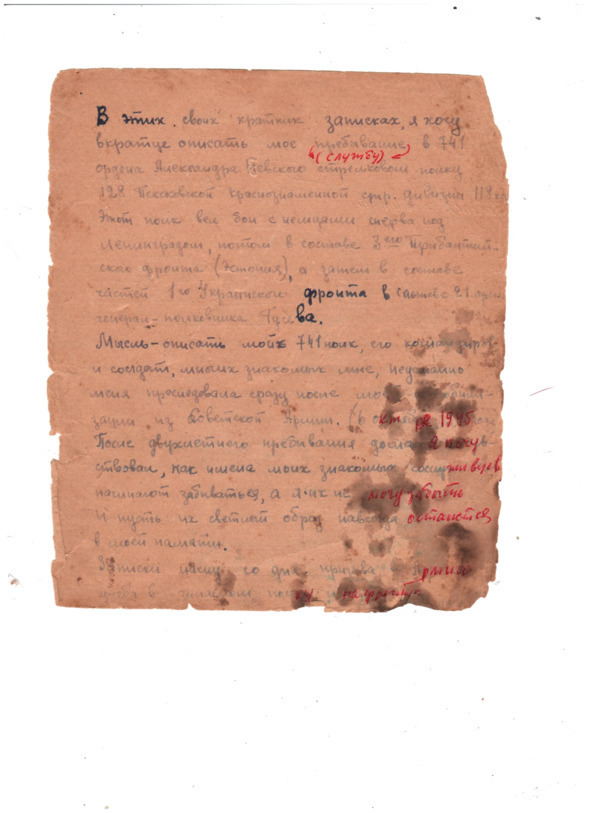 В этих своих кратких записках, я хочу
вкратце описать мое пребывание в 741
(службу)
ордена Александра Невского стрелковом полку
128 Псковской краснознаменной стр. дивизии 118
Этот полк вел бои с немцами сперва под
Ленинградом, потом в составе 3его Прибалтий-
ского фронта (Эстония), а затем в составе
частей 1го Украинского фронта в составе 21 армии
генерал-полковника Гусева.
Мысль - описать мой 741 полк, его командиров
и солдат, многих знакомых мне, неустанно
меня преследовала сразу после моей
зации из Советской Армии. (в октябре 1945
После двухлетнего пребывания дома я по чув-
ствовал, как имена моих знакомых сослуживцев
начинают забываться, а я их не могу забыть
И пусть их светлый образ навсегда останется
в моей памяти.
Записки пишу со дня призыва Армию